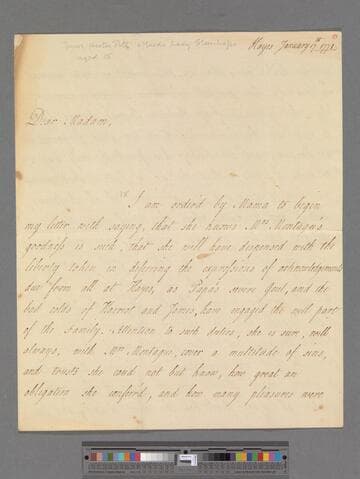 Hayes January 7th 1772.
aged 16
Dear Madam,
I am order'd by Mama to begin
my letter with saying, that she knows Mrs. Montagu's
goodness is such, that she will have dispensed with the
liberty taken in deferring the expressions of acknowledgements
due from all at Hayes, as Papa's severe Gout, and the
bad colds of Harriot and James, have engaged the well part
of the Family. Attention to such duties, she is sure, will
always, with Mrs. Montagu, cover a multitude of sins,
and trusts she could not but know, how great an
obligation she conferr'd, and how many pleasures were